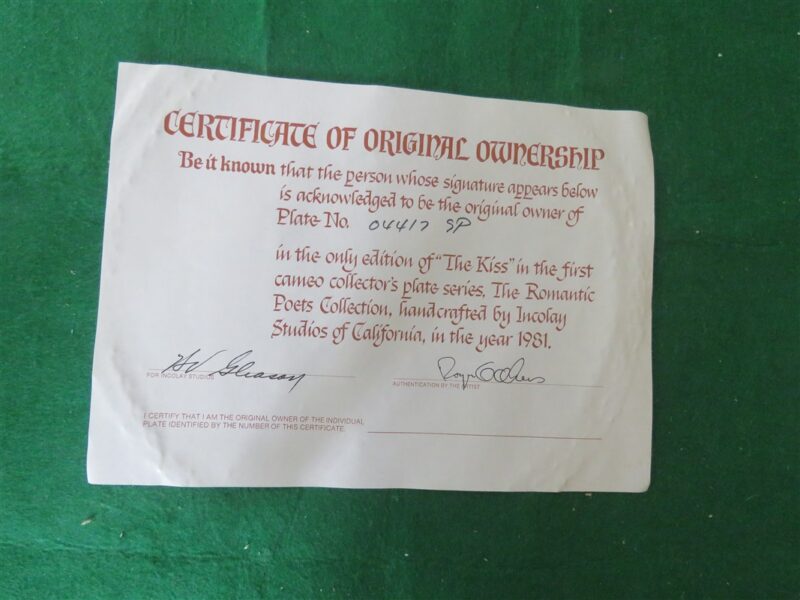 CERTIFICATE OF ORIGINAL OWNERSHIP
Be it known that the person whose signature appears below
is acknowledged to be the original owner of
Plate No. 04417 SP
in the only edition of "The Kiss" in the first
cameo collector's plate series, The Romantic
Poets Collection, handcrafted by Incolay
Studios of California, in the year 1981.
Gleason
FOR INCOLAY STUDIOS
AUTHENTICATION BY THE ARTIST
I CERTIFY THAT I AM THE ORIGINAL OWNER OF THE INDIVIDUAL
PLATE IDENTIFIED BY THE NUMBER OF THIS CERTIFICATE.